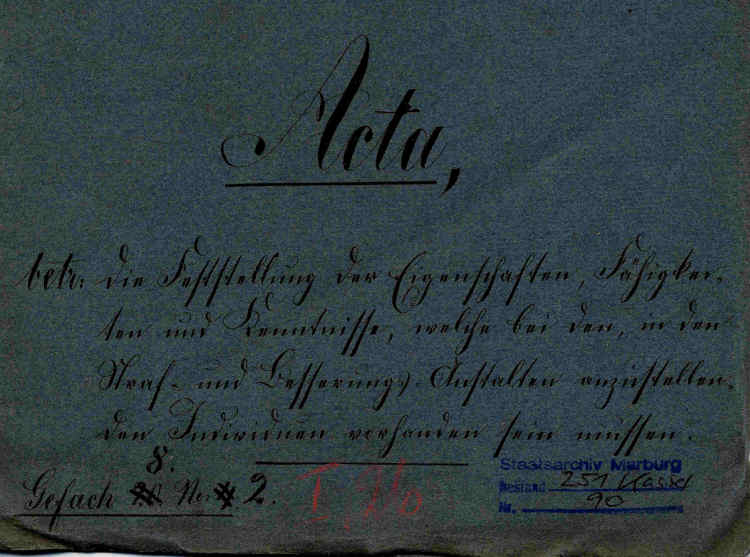 Acta,
betr: die Feststellung der Eigenschaften, Fähigkei-
ten und Kenntnisse, welche bei den, in den
Straf- und Besserungs-Anstalten anzustellen-
den Individuen vorhanden sein müssen.
8.
Gefach No: 2.
Staatsarchiv Marburg
Bestand 251 Kassel
Nr. 90